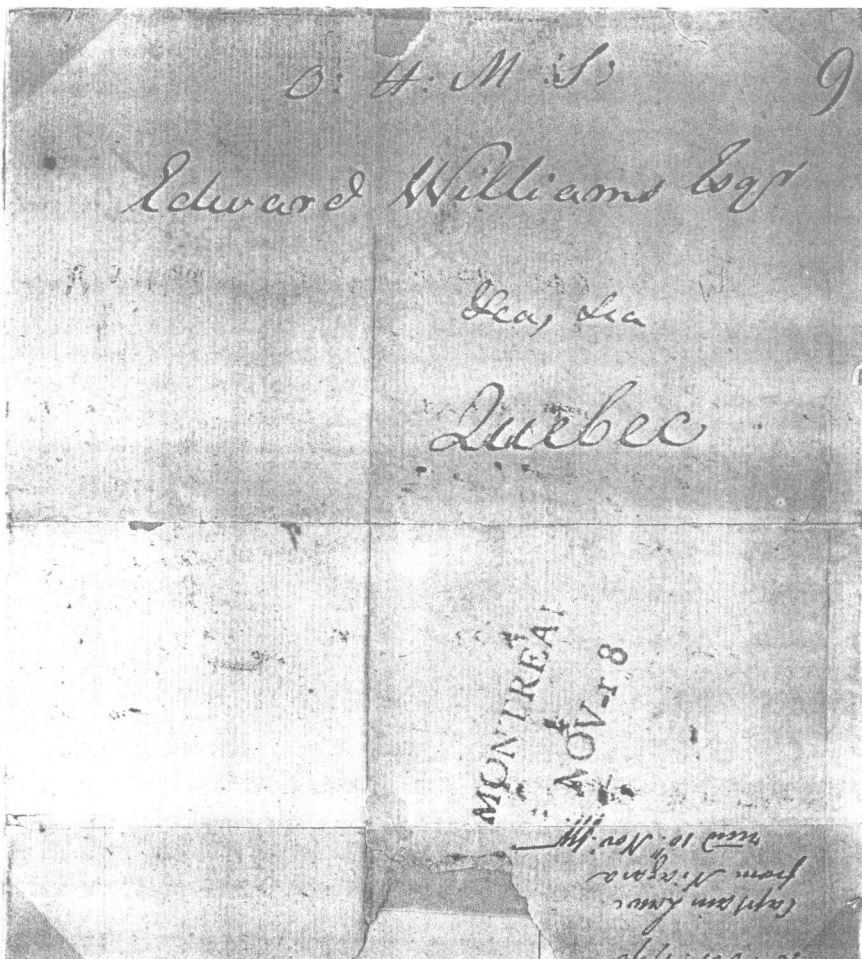 O: H: M: S: 9
Edward Williams Esqr
Quebec
MONTREAL
NOV-r 8
Captain
from Niagara
recd 10: Nov: